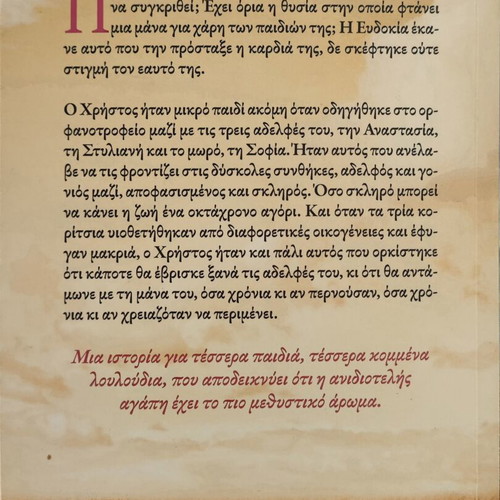 να συγκριθεί; Έχει όρια η θυσία στην οποία φτάνει
μια μάνα για χάρη των παιδιών της; Η Ευδοκία έκα-
νε αυτό που την πρόσταξε η καρδιά της, δε σκέφτηκε ούτε
στιγμή τον εαυτό της.
Ο Χρήστος ήταν μικρό παιδί ακόμη όταν οδηγήθηκε στο ορ-
φανοτροφείο μαζί με τις τρεις αδελφές του, την Αναστασία,
τη Στυλιανή και το μωρό, τη Σοφία. Ήταν αυτός που ανέλα-
βε να τις φροντίζει στις δύσκολες συνθήκες, αδελφός και γο-
νιός μαζί, αποφασισμένος και σκληρός. Όσο σκληρό μπορεί
να κάνει η ζωή ένα οκτάχρονο αγόρι. Και όταν τα τρία κο-
ρίτσια υιοθετήθηκαν από διαφορετικές οικογένειες και έφυ-
γαν μακριά, ο Χρήστος ήταν και πάλι αυτός που ορκίστηκε
ότι κάποτε θα έβρισκε ξανά τις αδελφές του, κι ότι θα αντά-
μωνε με τη μάνα του, όσα χρόνια κι αν περνούσαν, όσα χρό-
νια κι αν χρειαζόταν να περιμένει.
Μια ιστορία για τέσσερα παιδιά, τέσσερα κομμένα
λουλούδια, που αποδεικνύει ότι η ανιδιοτελής
αγάπη έχει το πιο μεθυστικό άρωμα.